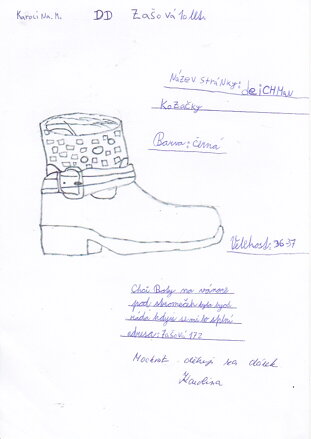 Karolína. M. DD Zašová 10 let
Název stránky: deichman
Kozačky
Barva: černá
Velikost: 36-37
Chci Boty na vánoce
pod stromeček byla bych
ráda kdyby se mi to splní
adresa: Zašová 172
Mockrát děkuji za dárek
Karolína